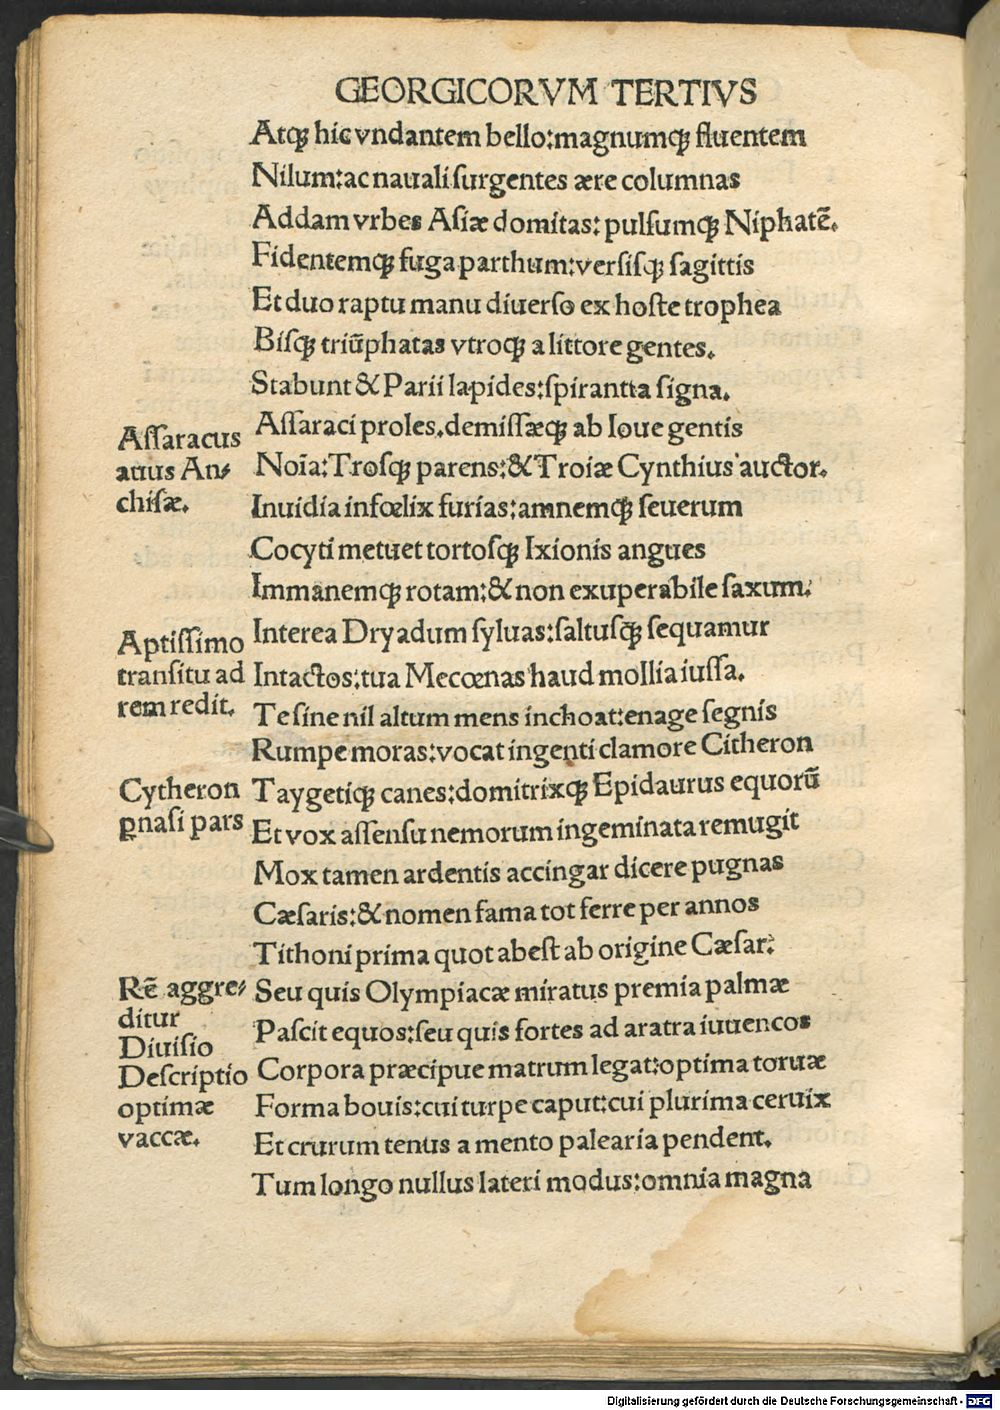 GEORGICORVM TERTIVS
Atqꝫ hic vndantem bello:magnumqꝫ fluentem
Nilum:ac nauali ſurgentes ære columnas
Addam vrbes Aſiæ domitas: pulſumqꝫ Niphatē.
Fidentemqꝫ fuga parthum:verſiſqꝫ ſagittis
Et duo raptu manu diuerſo ex hoſte trophea
Biſqꝫ triūphatas vtroqꝫ a littore gentes.
Stabunt & Parii lapides:ſpirantta ſigna.
Aſſaraci proles.demiſſæqꝫ ab Ioue gentis
Noīa:Troſqꝫ parens:& Troiæ Cynthius auctor.
Inuidia infœlix furias:amnemqꝫ ſeuerum
Cocyti metuet tortoſqꝫ Ixionis angues
Immanemqꝫ rotam:& non exuperabile ſaxum.
Interea Dryadum ſyluas:ſaltuſqꝫ ſequamur
Intactos:tua Mecœnas haud mollia iuſſa.
Te ſine nil altum mens inchoat:enage ſegnis
Rumpe moras:vocat ingenti clamore Citheron
Taygetiqꝫ canes:domitrixqꝫ Epidaurus equorū
Et vox aſſenſu nemorum ingeminata remugit
Mox tamen ardentis accingar dicere pugnas
Cæſaris:& nomen fama tot ferre per annos
Tithoni prima quot abeſt ab origine Cæſar:
Seu quis Olympiacæ miratus premia palmæ
Paſcit equos:ſeu quis fortes ad aratra iuuencos
Corpora præcipue matrum legat:optima toruæ
Forma bouis:cui turpe caput:cui plurima ceruix
Et crurum tenus a mento palearia pendent.
Tum longo nullus lateri modus:omnia magna
Aſſaracus
auus An-
chiſæ.
Aptiſſimo
tranſitu ad
rem redit.
Cytheron
ꝑnaſi pars
Rē aggre-
ditur
Diuiſio
Deſcriptio
optimæ
vaccæ.
Digitalisierung gefördert durch die Deutsche Forschungsgemeinschaft - DFG